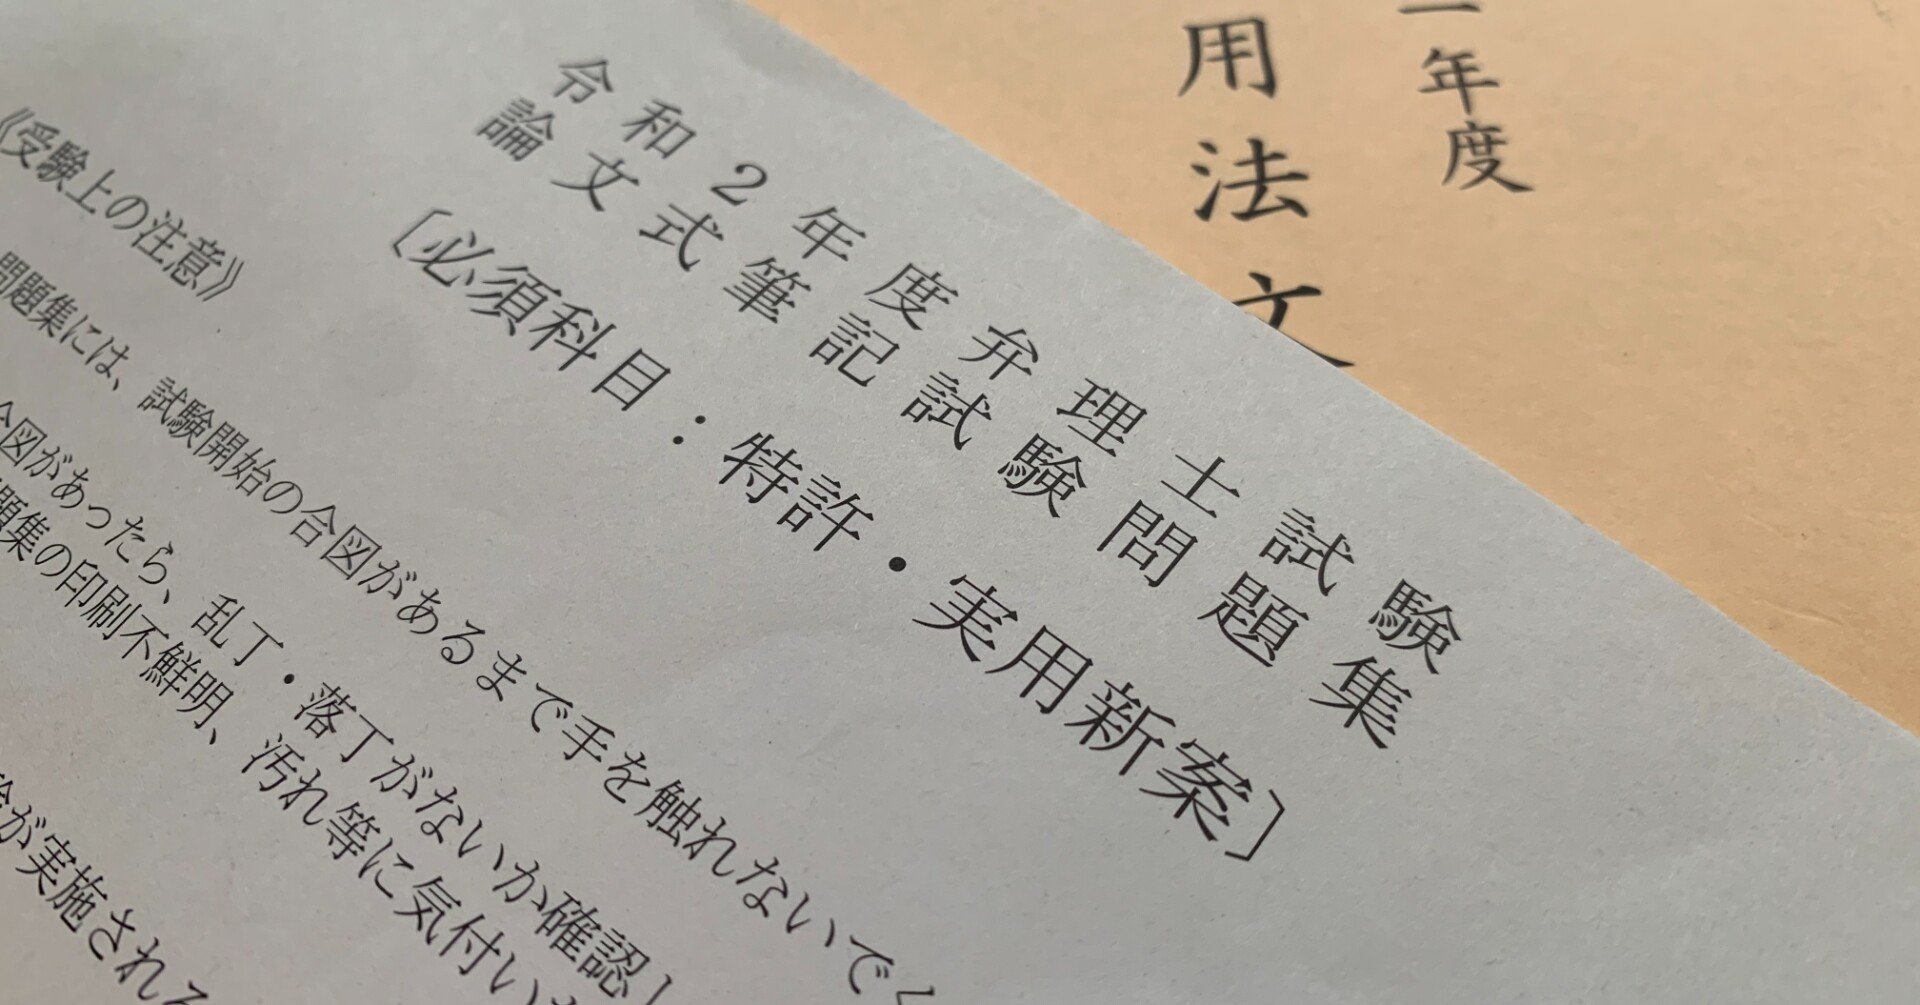 令和2年度弁理士試験
論文式筆記試験問題集
〔必須科目：特許・実用新案〕
《受験上の注意》
問題集には、試験開始の合図があるまで手を触れないで
合図があったら、乱丁・落丁がないか確認し
題集の印刷不鮮明、汚れ等に気付い
が実施される
年度
用法文